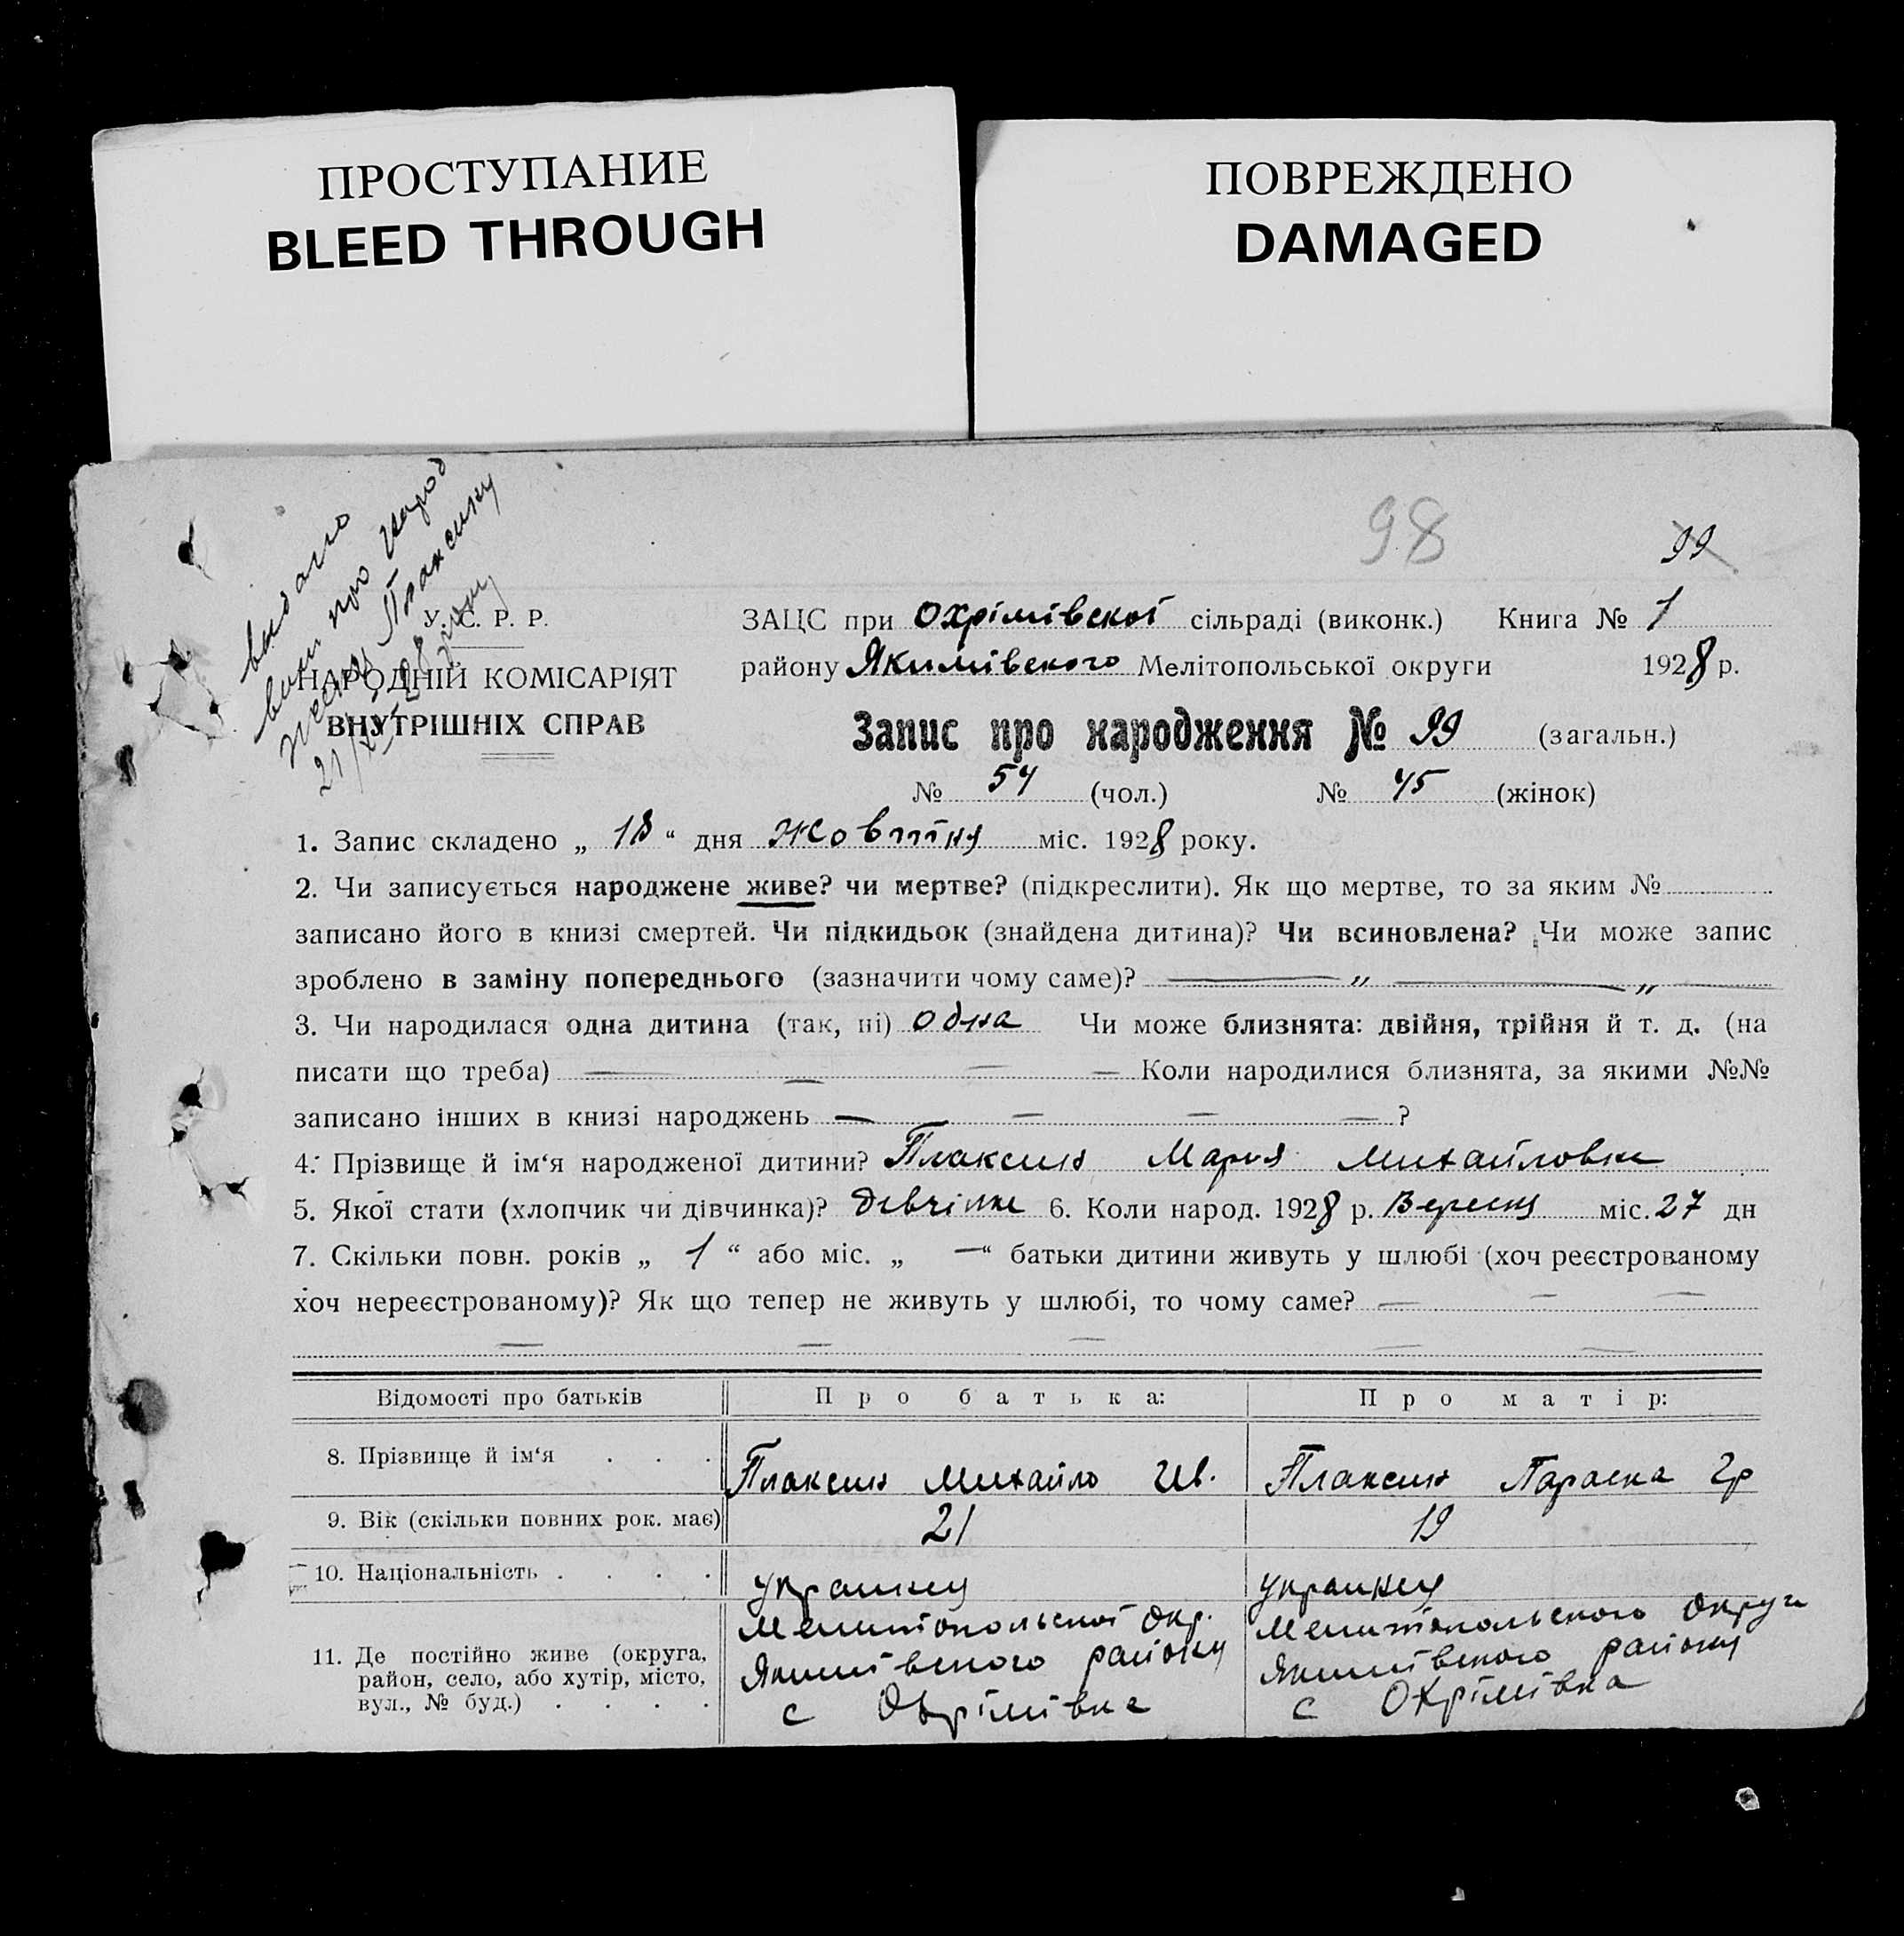 ПРОСТУПАНИЕ
BLEED THROUGH
ПОВРЕЖДЕНО
DAMAGED
98
99
видано
про народ
Плаксину
У. С. Р. Р.
НАРОДНІЙ КОМІСАРІЯТ
ВНУТРІШНІХ СПРАВ
ЗАЦС при Охрімівскої сільраді (виконк.) Книга № 1
району Якимівского Мелітопольської округи 1928 р.
Запис про народження № 99 (загальн.)
№ 54 (чол.) № 45 (жінок)
1. Запис складено „ 18 “ дня Жовтня міс. 1928 року.
2. Чи записується народжене живе? чи мертве? (підкреслити). Як що мертве, то за яким №
записано його в книзі смертей. Чи підкидьок (знайдена дитина)? Чи всиновлена? Чи може запис
зроблено в заміну попереднього (зазначити чому саме)? — „ — „ —
3. Чи народилася одна дитина (так, ні) одна Чи може близнята: двійня, трійня й т. д. (на
писати що треба) — — — — Коли народилися близнята, за якими №№
записано інших в книзі народжень — — — — ?
4. Прізвище й ім‘я народженої дитини? Плаксин Мария Михайловна
5. Якої стати (хлопчик чи дівчинка)? дівчінка 6. Коли народ. 1928 р. Вересня міс. 27 дн
7. Скільки повн. років „ 1 “ або міс. „ —“ батьки дитини живуть у шлюбі (хоч реєстрованому
хоч нереєстрованому)? Як що тепер не живуть у шлюбі, то чому саме? — — —
— — — — —
Відомості про батьків Про батька: Про матір:
8. Прізвище й ім‘я . . . Плаксин Михайло Ив. Плаксин Параска Гр
9. Вік (скільки повних рок. має) 21 19
10. Національність . . . . украинец украинец
11. Де постійно живе (округа,
район, село, або хутір, місто,
вул., № буд.) . . . .
Мелитопольской Окр.
Якимівского району
с Охрімівка
Мелитопольского Округи
Якимівского району
с Охрімівка